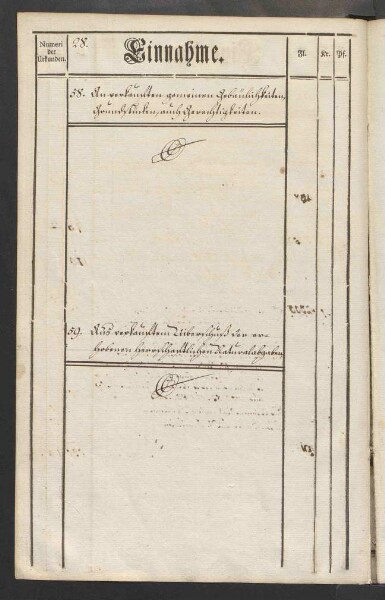 Numeri
der
Urkunden.
28.
Einnahme.
fl.
Kr.
Pf.
58. An verkauften gemeinen Gebäulichkeiten,
Grundstücken, auch Gerechtigkeiten.
59. Aus verkauftem Ueberschuß der er-
hobenen herrschaftlichen Naturalabgaben